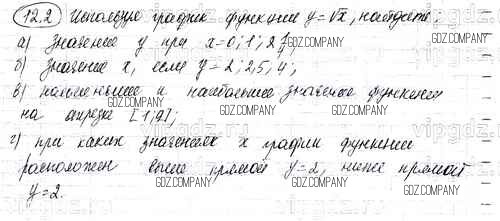 12.2 Используя график функции y=√x, найдите:
а) значение y при x=0; 1;
б) значение x, если y=2; 2,5; 4;
GDZ.COMPANY
в) наименьшее и наибольшее значение функции
GDZ.COMPANY GDZ.COMPANY
на отрезке [1;9];
г) при каких значениях x график функции
GDZ.COMPANY
расположен выше прямой y=2, ниже прямой
GDZ.COMPANY GDZ.COMPANY
y=2.